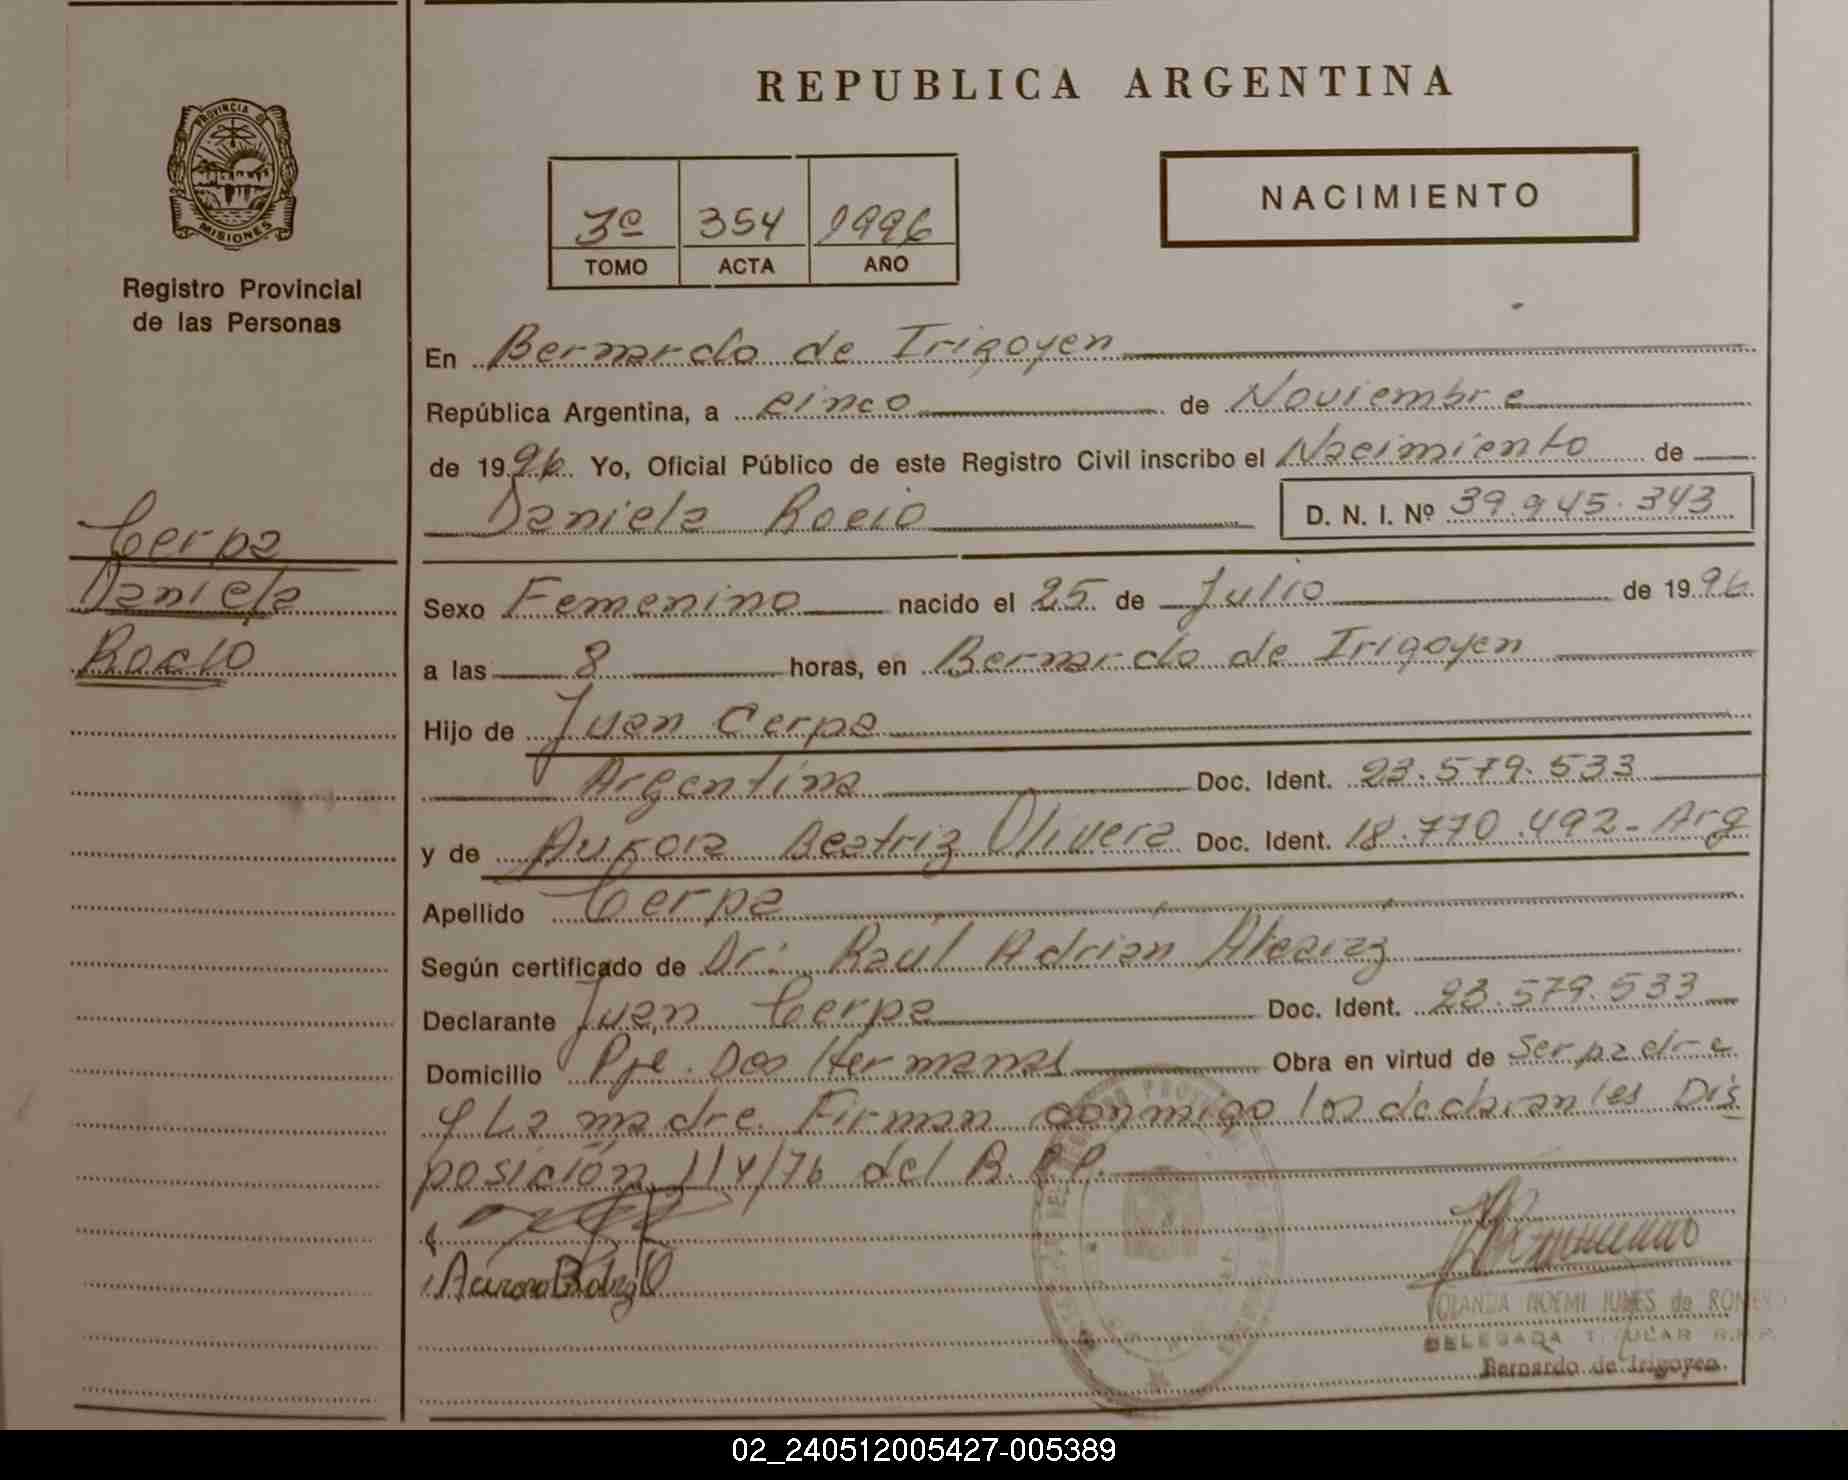 REPUBLICA ARGENTINA
PROVINCIA DE
MISIONES
Registro Provincial
de las Personas
3º 354 1996
TOMO ACTA AÑO
NACIMIENTO
En Bernardo de Irigoyen
República Argentina, a cinco de Noviembre
de 1996. Yo, Oficial Público de este Registro Civil inscribo el Nacimiento de
Daniela Rocio D. N. I. Nº 39.945.343
Cerpa
Daniela
Rocio
Sexo Femenino nacido el 25 de Julio de 1996
a las 8 horas, en Bernardo de Irigoyen
Hijo de Juan Cerpa
Argentina Doc. Ident. 23.579.533
y de Aurora Beatriz Olivera Doc. Ident. 18.770.492- Arg
Apellido Cerpa
Según certificado de Dr: Raúl Adrián
Declarante Juan Cerpa Doc. Ident. 23.579.533
Domicilio Pje. Dos Hermanas Obra en virtud de Ser padre
y La madre. Firman conmigo los declarantes Dis
posición 114/76 del R.P.P.
Aurora
YOLANDA NOEMI de
DELEGADA TITULAR R.P.P.
Bernardo de Irigoyen.
02_240512005427-005389